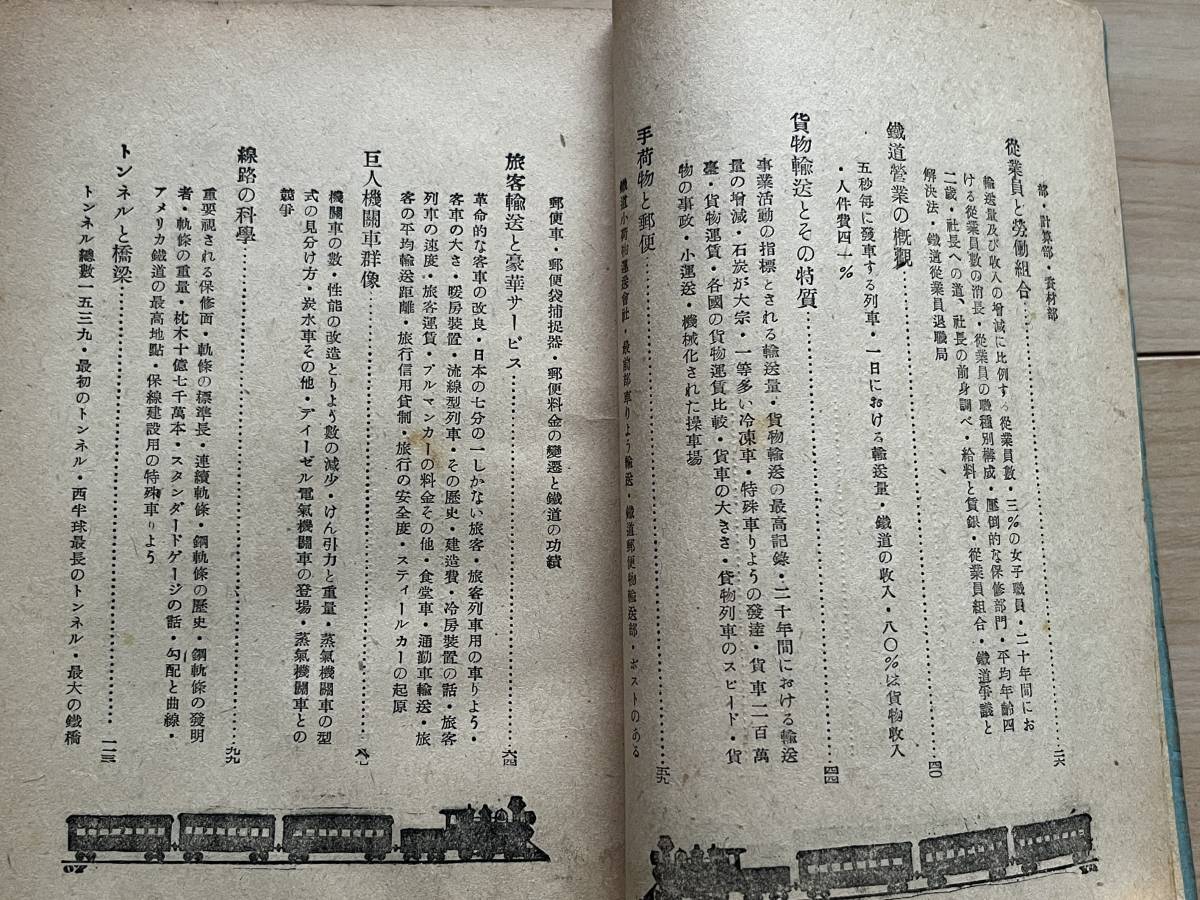 部・計算部・資材部
從業員と勞働組合…………二六
輸送量及び收入の增減に比例する從業員數・三%の女子職員・二十年間にお
ける從業員數の消長・從業員の職種別構成・壓倒的な保修部門・平均年齡四
二歲・社長への道、社長の前身調べ・給料と賃銀・從業員組合・鐵道爭議と
解決法・鐵道從業員退職局
鐵道營業の槪觀…………四〇
五秒每に發車する列車・一日における輸送量・鐵道の收入・八〇%は貨物收入
・人件費四一%
貨物輸送とその特質…………四四
事業活動の指標とされる輸送量・貨物輸送の最高記錄・二十年間における輸送
量の增減・石炭が大宗・一等多い冷凍車・特殊車りようの發達・貨車二百萬
臺・貨物運賃・各國の貨物運賃比較・貨車の大きさ・貨物列車のスピード・貨
物の事政・小運送・機械化された操車場
手荷物と郵便…………五九
鐵道小荷物運送會社・最前部車りよう輸送・鐵道郵便物輸送部・ポストのある
郵便車・郵便袋捕捉器・郵便料金の變遷と鐵道の功績
旅客輸送と豪華サービス…………六四
革命的な客車の改良・日本の七分の一しかない旅客・旅客列車用の車りよう・
客車の大さ・暖房裝置・流線型列車・その歷史・建造費・冷房裝置の話・旅客
列車の速度・旅客運賃・プルマンカーの料金その他・食堂車・通勤車輸送・旅
客の平均輸送距離・旅行信用貸制・旅行の安全度・スティールカーの起原
巨人機關車群像…………八七
機關車の數・性能の改造とりよう數の減少・けん引力と重量・蒸氣機關車の型
式の見分け方・炭水車その他・ディーゼル電氣機關車の登場・蒸氣機關車との
競爭
線路の科學…………九九
重要視される保修面・軌條の標準長・連續軌條・鋼軌條の歷史・鋼軌條の發明
者・軌條の重量・枕木十億七千萬本・スタンダードゲージの話・勾配と曲線・
アメリカ鐵道の最高地點・保線建設用の特殊車りよう
トンネルと橋梁…………一一三
トンネル總數一五三九・最初のトンネル・西半球最長のトンネル・最大の鐵橋